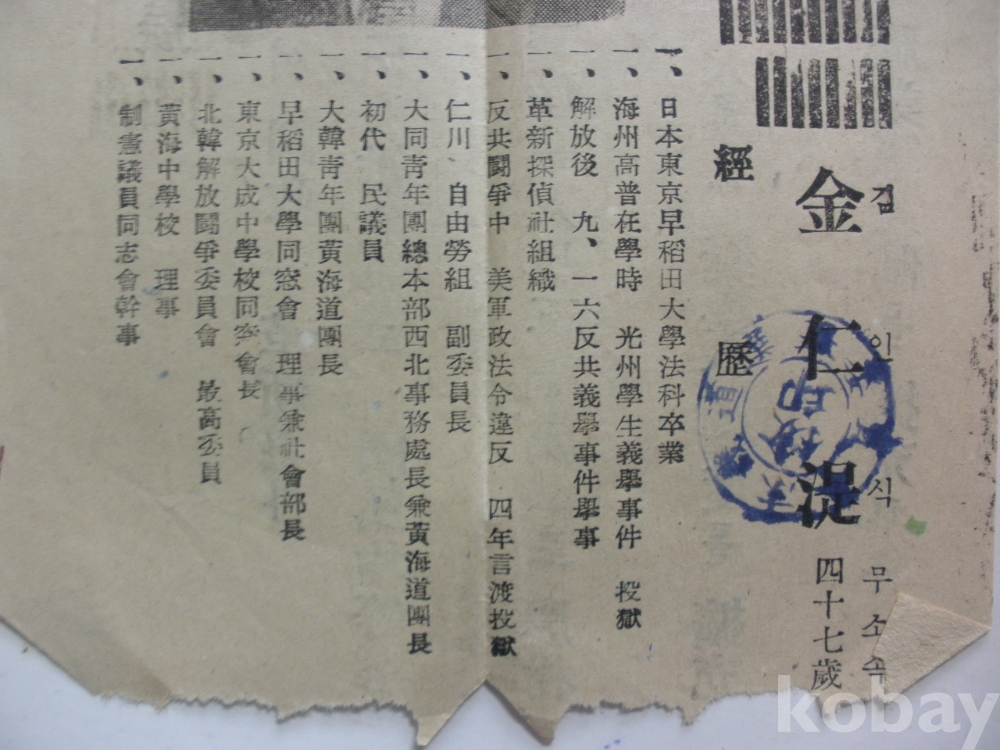 김 인 식 무소속
金仁湜 四十七歲
經歷
一、日本東京早稻田大學法科卒業
一、海州高普在學時 光州學生義擧事件 投獄
一、解放後 九、一六反共義擧事件擧事
一、革新探偵社組織
一、反共鬪爭中 美軍政法令違反 四年言渡投獄
一、仁川 自由勞組 副委員長
一、大同靑年團總本部西北事務處長兼黃海道團長
一、初代 民議員
一、大韓靑年團黃海道團長
一、早稻田大學同窓會 理事兼社會部長
一、東京大成中學校同窓會長
一、北韓解放鬪爭委員會 最高委員
一、黃海中學校 理事
一、制憲議員同志會幹事
kobay